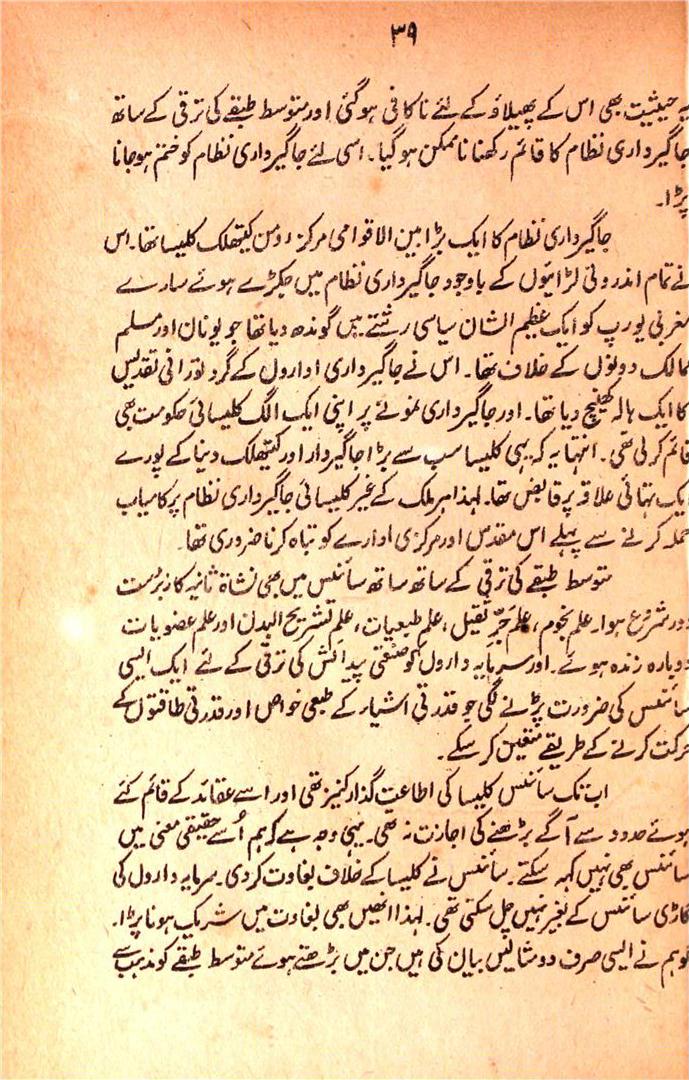 ۳۹
یہ حیثیت بھی اس کے پھیلاؤ کے لئے ناکافی ہوگئی اور متوسط طبقے کی ترقی کے ساتھ
جاگیرداری نظام کا قائم رکھنا ناممکن ہوگیا۔ اسی لئے جاگیرداری نظام کو ختم ہوجانا
پڑا۔
جاگیرداری نظام کا ایک بڑا بین الاقوامی مرکز رومن کیتھلک کلیسا تھا۔ اس
نے تمام اندرونی لڑائیوں کے باوجود جاگیرداری نظام میں جکڑے ہوئے سارے
مغربی یورپ کو ایک عظیم الشان سیاسی رشتے میں گوندھ دیا تھا جو یونان اور مسلم
ممالک دونوں کے خلاف تھا۔ اس نے جاگیرداری اداروں کے گرد نورانی تقدیس
کا ایک ہالہ کھینچ دیا تھا۔ اور جاگیرداری نمونے پر اپنی ایک الگ کلیسائی حکومت بھی
قائم کرلی تھی۔ انتہا یہ کہ یہی کلیسا سب سے بڑا جاگیردار اور کیتھلک دنیا کے پورے
ایک تہائی علاقہ پر قابض تھا۔ لہذا ہر ملک کے غیر کلیسائی جاگیرداری نظام پر کامیاب
حملہ کرنے سے پہلے اس مقدس اور مرکزی ادارے کو تباہ کرنا ضروری تھا۔
متوسط طبقے کی ترقی کے ساتھ ساتھ سائنس میں بھی نشاۃ ثانیہ کا زبردست
دور شروع ہوا۔ علم نجوم، علم جرِّ ثقیل، علم طبعیات، علم تشریح البدن اور علم عضویات
دوبارہ زندہ ہوئے۔ اور سرمایہ داروں کو صنعتی پیدائش کی ترقی کے لئے ایک ایسی
سائنس کی ضرورت پڑنے لگی جو قدرتی اشیاء کے طبعی خواص اور قدرتی طاقتوں کے
حرکت کرنے کے طریقے متعین کرسکے۔
اب تک سائنس کلیسا کی اطاعت گذار کنیز تھی اور اسے عقائد کے قائم کئے
ہوئے حدود سے آگے بڑھنے کی اجازت نہ تھی۔ یہی وجہ ہے کہ ہم اُسے حقیقی معنی میں
سائنس بھی نہیں کہہ سکتے۔ سائنس نے کلیسا کے خلاف بغاوت کردی۔ سرمایہ داروں کی
گاڑی سائنس کے بغیر نہیں چل سکتی تھی۔ لہذا انھیں بھی بغاوت میں شریک ہونا پڑا۔
گو ہم نے ایسی صرف دو مثالیں بیان کی ہیں جن میں بڑھتے ہوئے متوسط طبقے کو مذہب سے